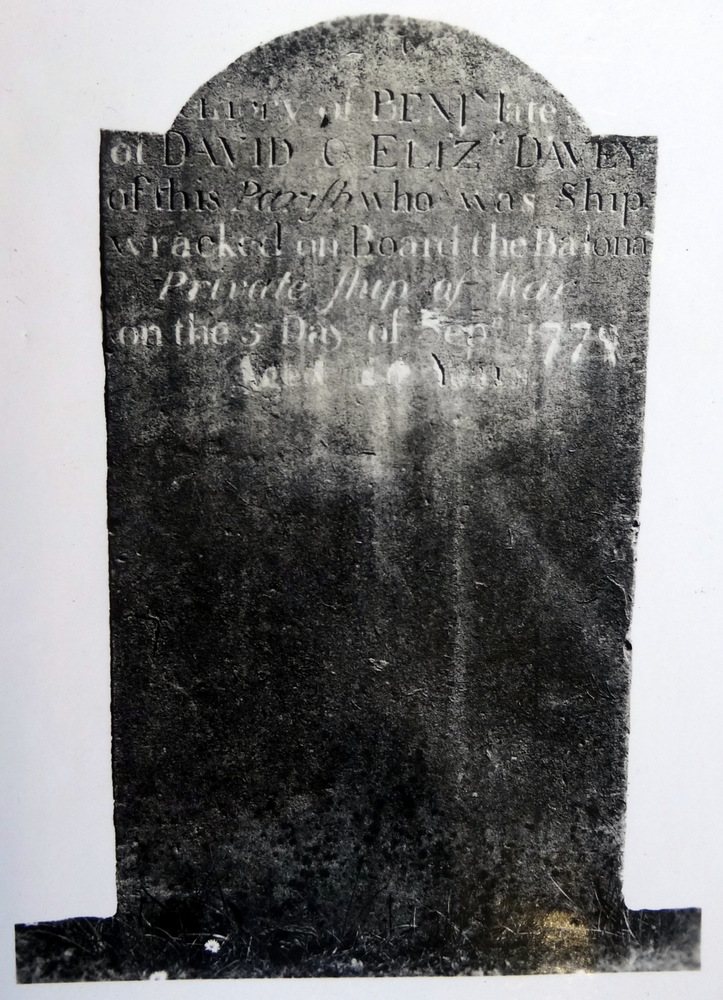 of BENJⁿ late
of DAVID & ELIZᵗʰ DAVEY
of this Parish who was Ship
wracked on Board the
Private ship of War
on the 5 Day of Sepᵗ
Aged Years